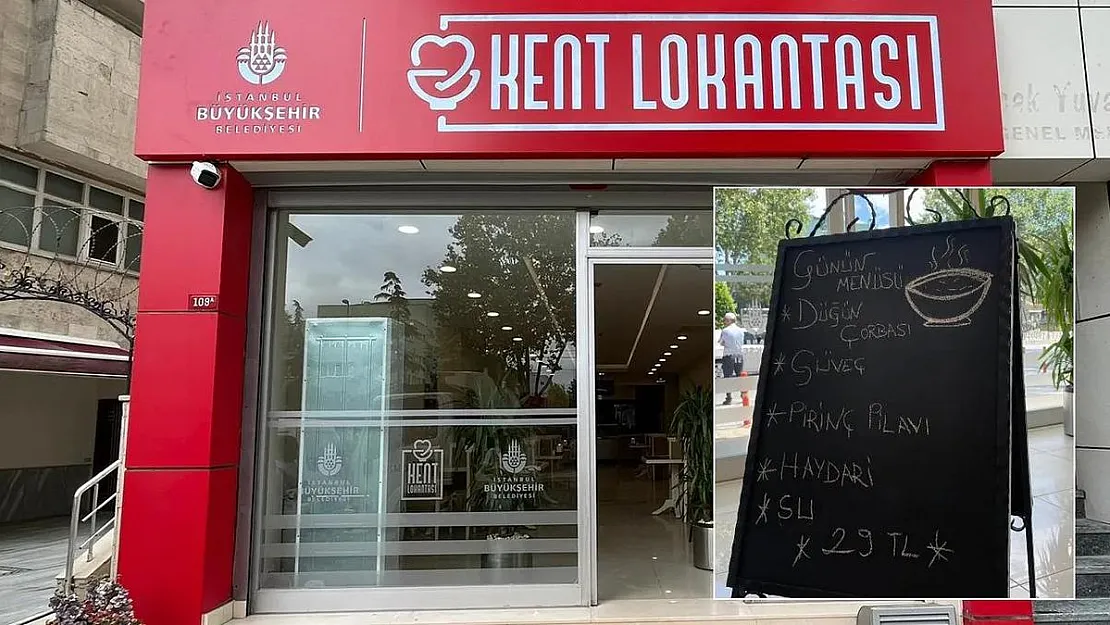 İSTANBUL
BÜYÜKŞEHİR
BELEDİYESİ
KENT LOKANTASI
109A
KENT
LOKANTASI
İSTANBUL
BÜYÜKŞEHİR
BELEDİYESİ
BÜYÜKŞEHİR
BELEDİYESİ
GENEL
GÜNÜN
MENÜSÜ
* DÜĞÜN
ÇORBASI
* GÜVEÇ
* PİRİNÇ PİLAVI
* HAYDARİ
* SU
* 29 TL *